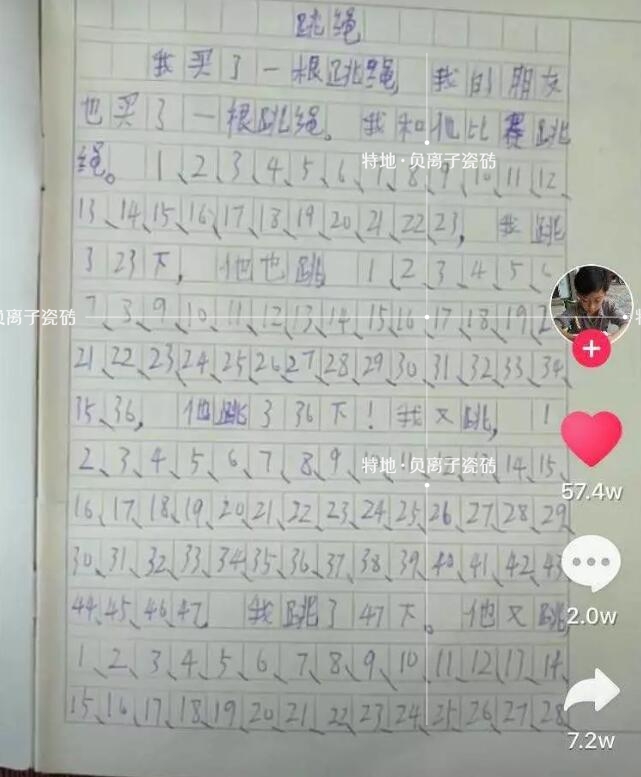 跳绳
我买了一根跳绳,我的朋友
也买了一根跳绳。我和他比赛跳
绳。1、2、3、4、5、6、7、8、9、10、11、12、
13、14、15、16、17、18、19、20、21、22、23,我跳
了23下,他也跳1、2、3、4、5、6、
7、8、9、10、11、12、13、14、15、16、17、18、19、
21、22、23、24、25、26、27、28、29、30、31、32、33、34、
35、36,他跳了36下!我又跳,1
2、3、4、5、6、7、8、9、10、11、12、13、14、15、
16、17、18、19、20、21、22、23、24、25、26、27、28、29
30、31、32、33、34、35、36、37、38、39、40、41、42、43
44、45、46、47 我跳了47下。他又跳
1、2、3、4、5、6、7、8、9、10、11、12、13、14
15、16、17、18、19、20、21、22、23、24、25、26、27、28、
特地·负离子瓷砖
负离子瓷砖
特地·负离子瓷砖
57.4w
2.0w
7.2w